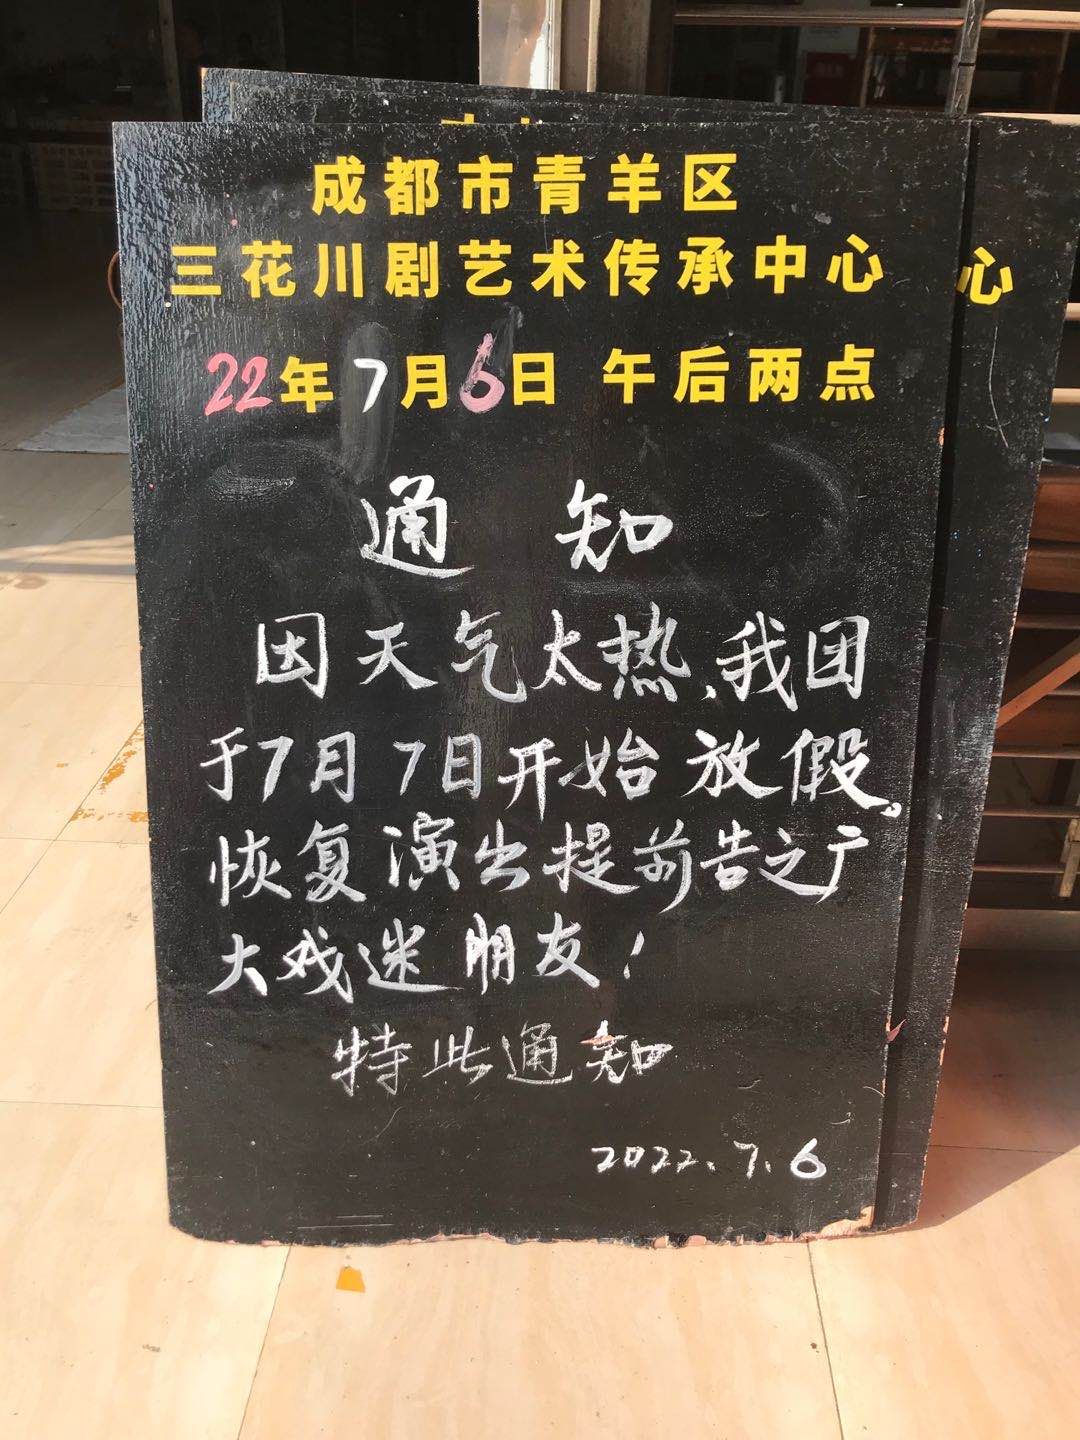 成都市青羊区
三花川剧艺术传承中心
22年7月6日 午后两点
通知
因天气太热、我团
于7月7日开始放假。
恢复演出提前告之广
大戏迷朋友！
特此通知
2022.7.6
心